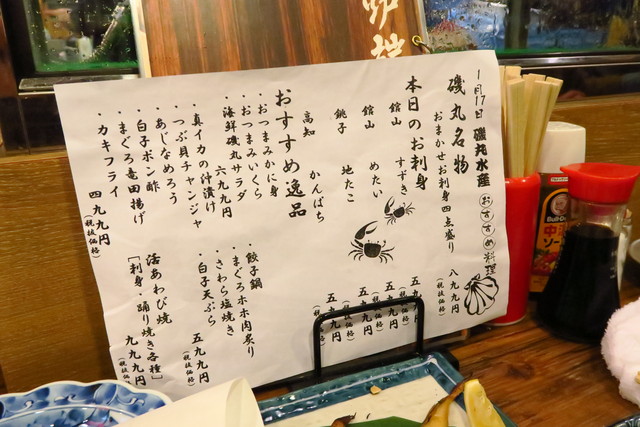 1月17日 磯丸水産 おすすめ料理
磯丸名物
おまかせお刺身四点盛り 八九九円
本日のお刺身
館山 すずき 五九九円(税抜価格)
館山 めたい 五九九円(税抜価格)
銚子 地たこ 五九九円(税抜価格)
高知 かんぱち 五九九円(税抜価格)
おすすめ逸品
・おつまみかに身
・おつまみいくら
・海鮮磯丸サラダ 六九九円
・真イカの沖漬け
・つぶ貝チャンジャ
・あじなめろう
・白子ポン酢
・まぐろ竜田揚げ
・カキフライ
四九九円(税抜価格)
・餃子鍋
・まぐろホホ肉炙り
・さわら塩焼き
・白子天ぷら
五九九円(税抜価格)
活あわび焼
[刺身・踊り焼き各種]
九九九円(税抜価格)
炉端
Bull-Dog
中濃
ソース